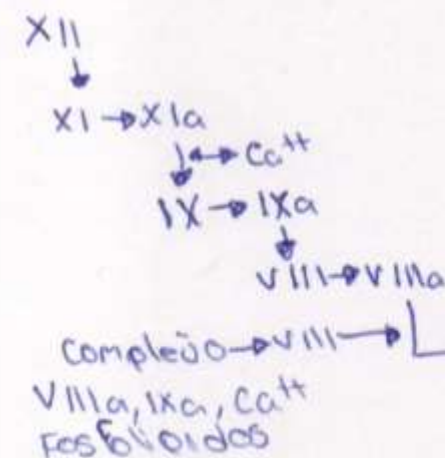 XII
XI → XIa
Ca++
IX → IXa
VIII → VIIIa
Complejo → VIII
VIIIa, IXa, Ca++
Fosfolípidos